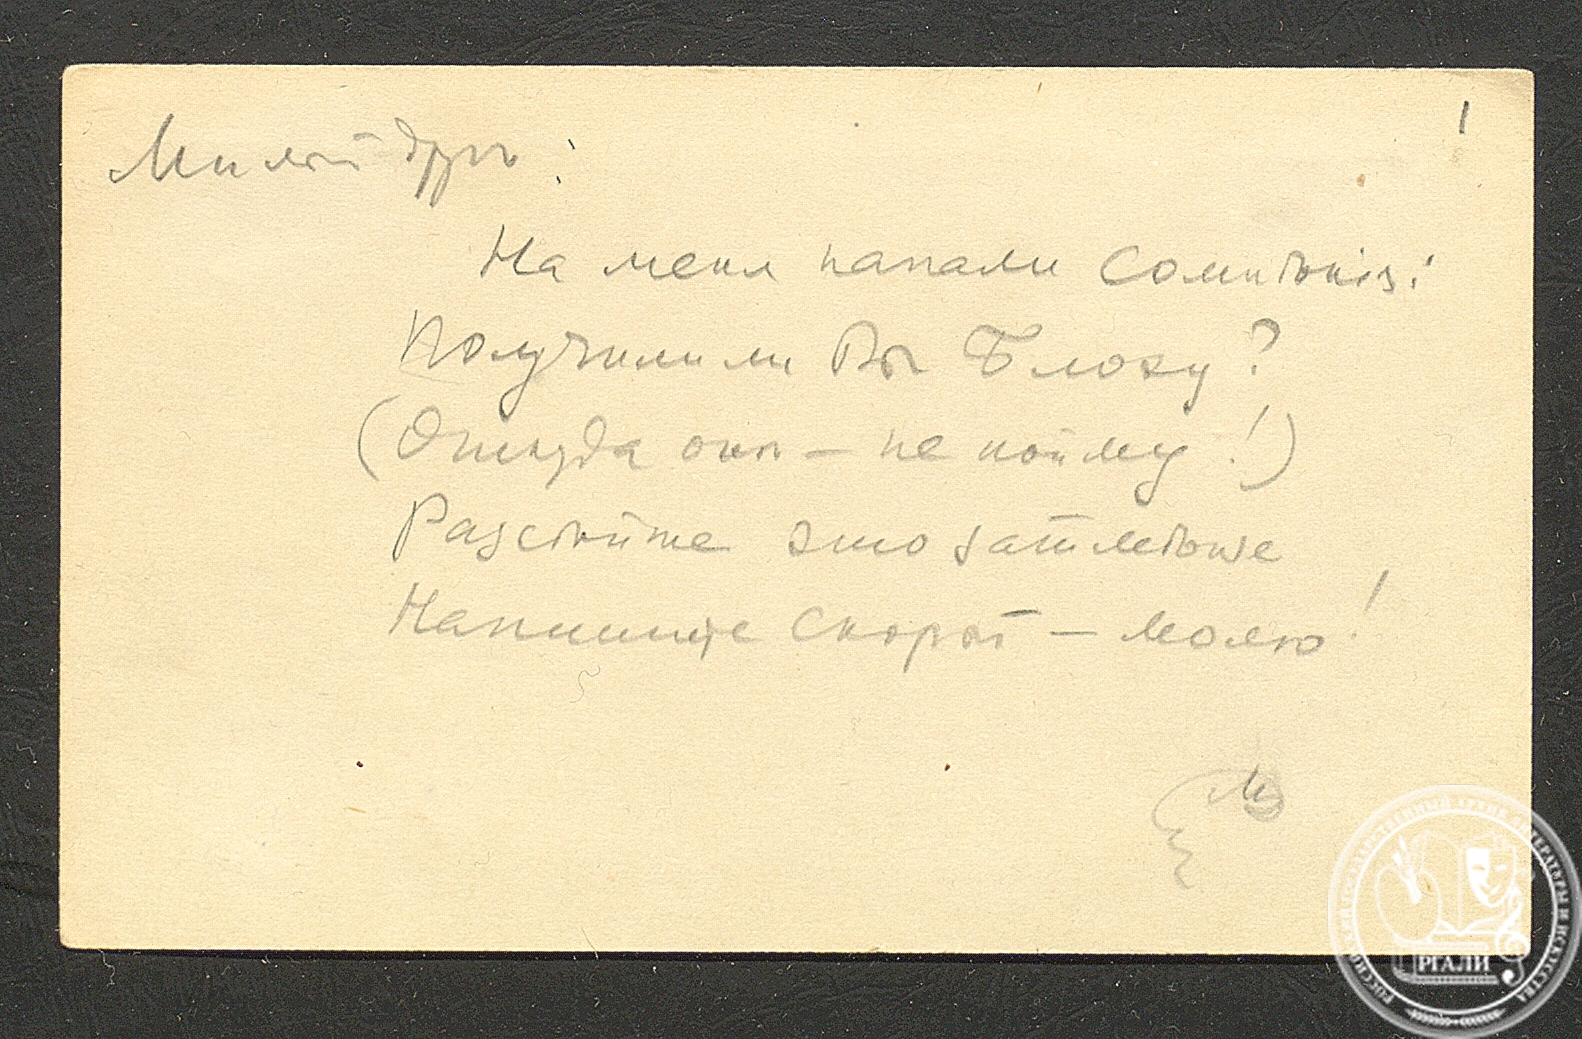 1
Милый другъ:
На меня напали сомнѣнія:
Получили ли Вы Блоху?
(Откуда они — не пойму!)
Разсѣйте это затменіе
Напишите скорѣй — молю!
РОССИЙСКИЙ ГОСУДАРСТВЕННЫЙ АРХИВ ЛИТЕРАТУРЫ И ИСКУССТВА
РГАЛИ